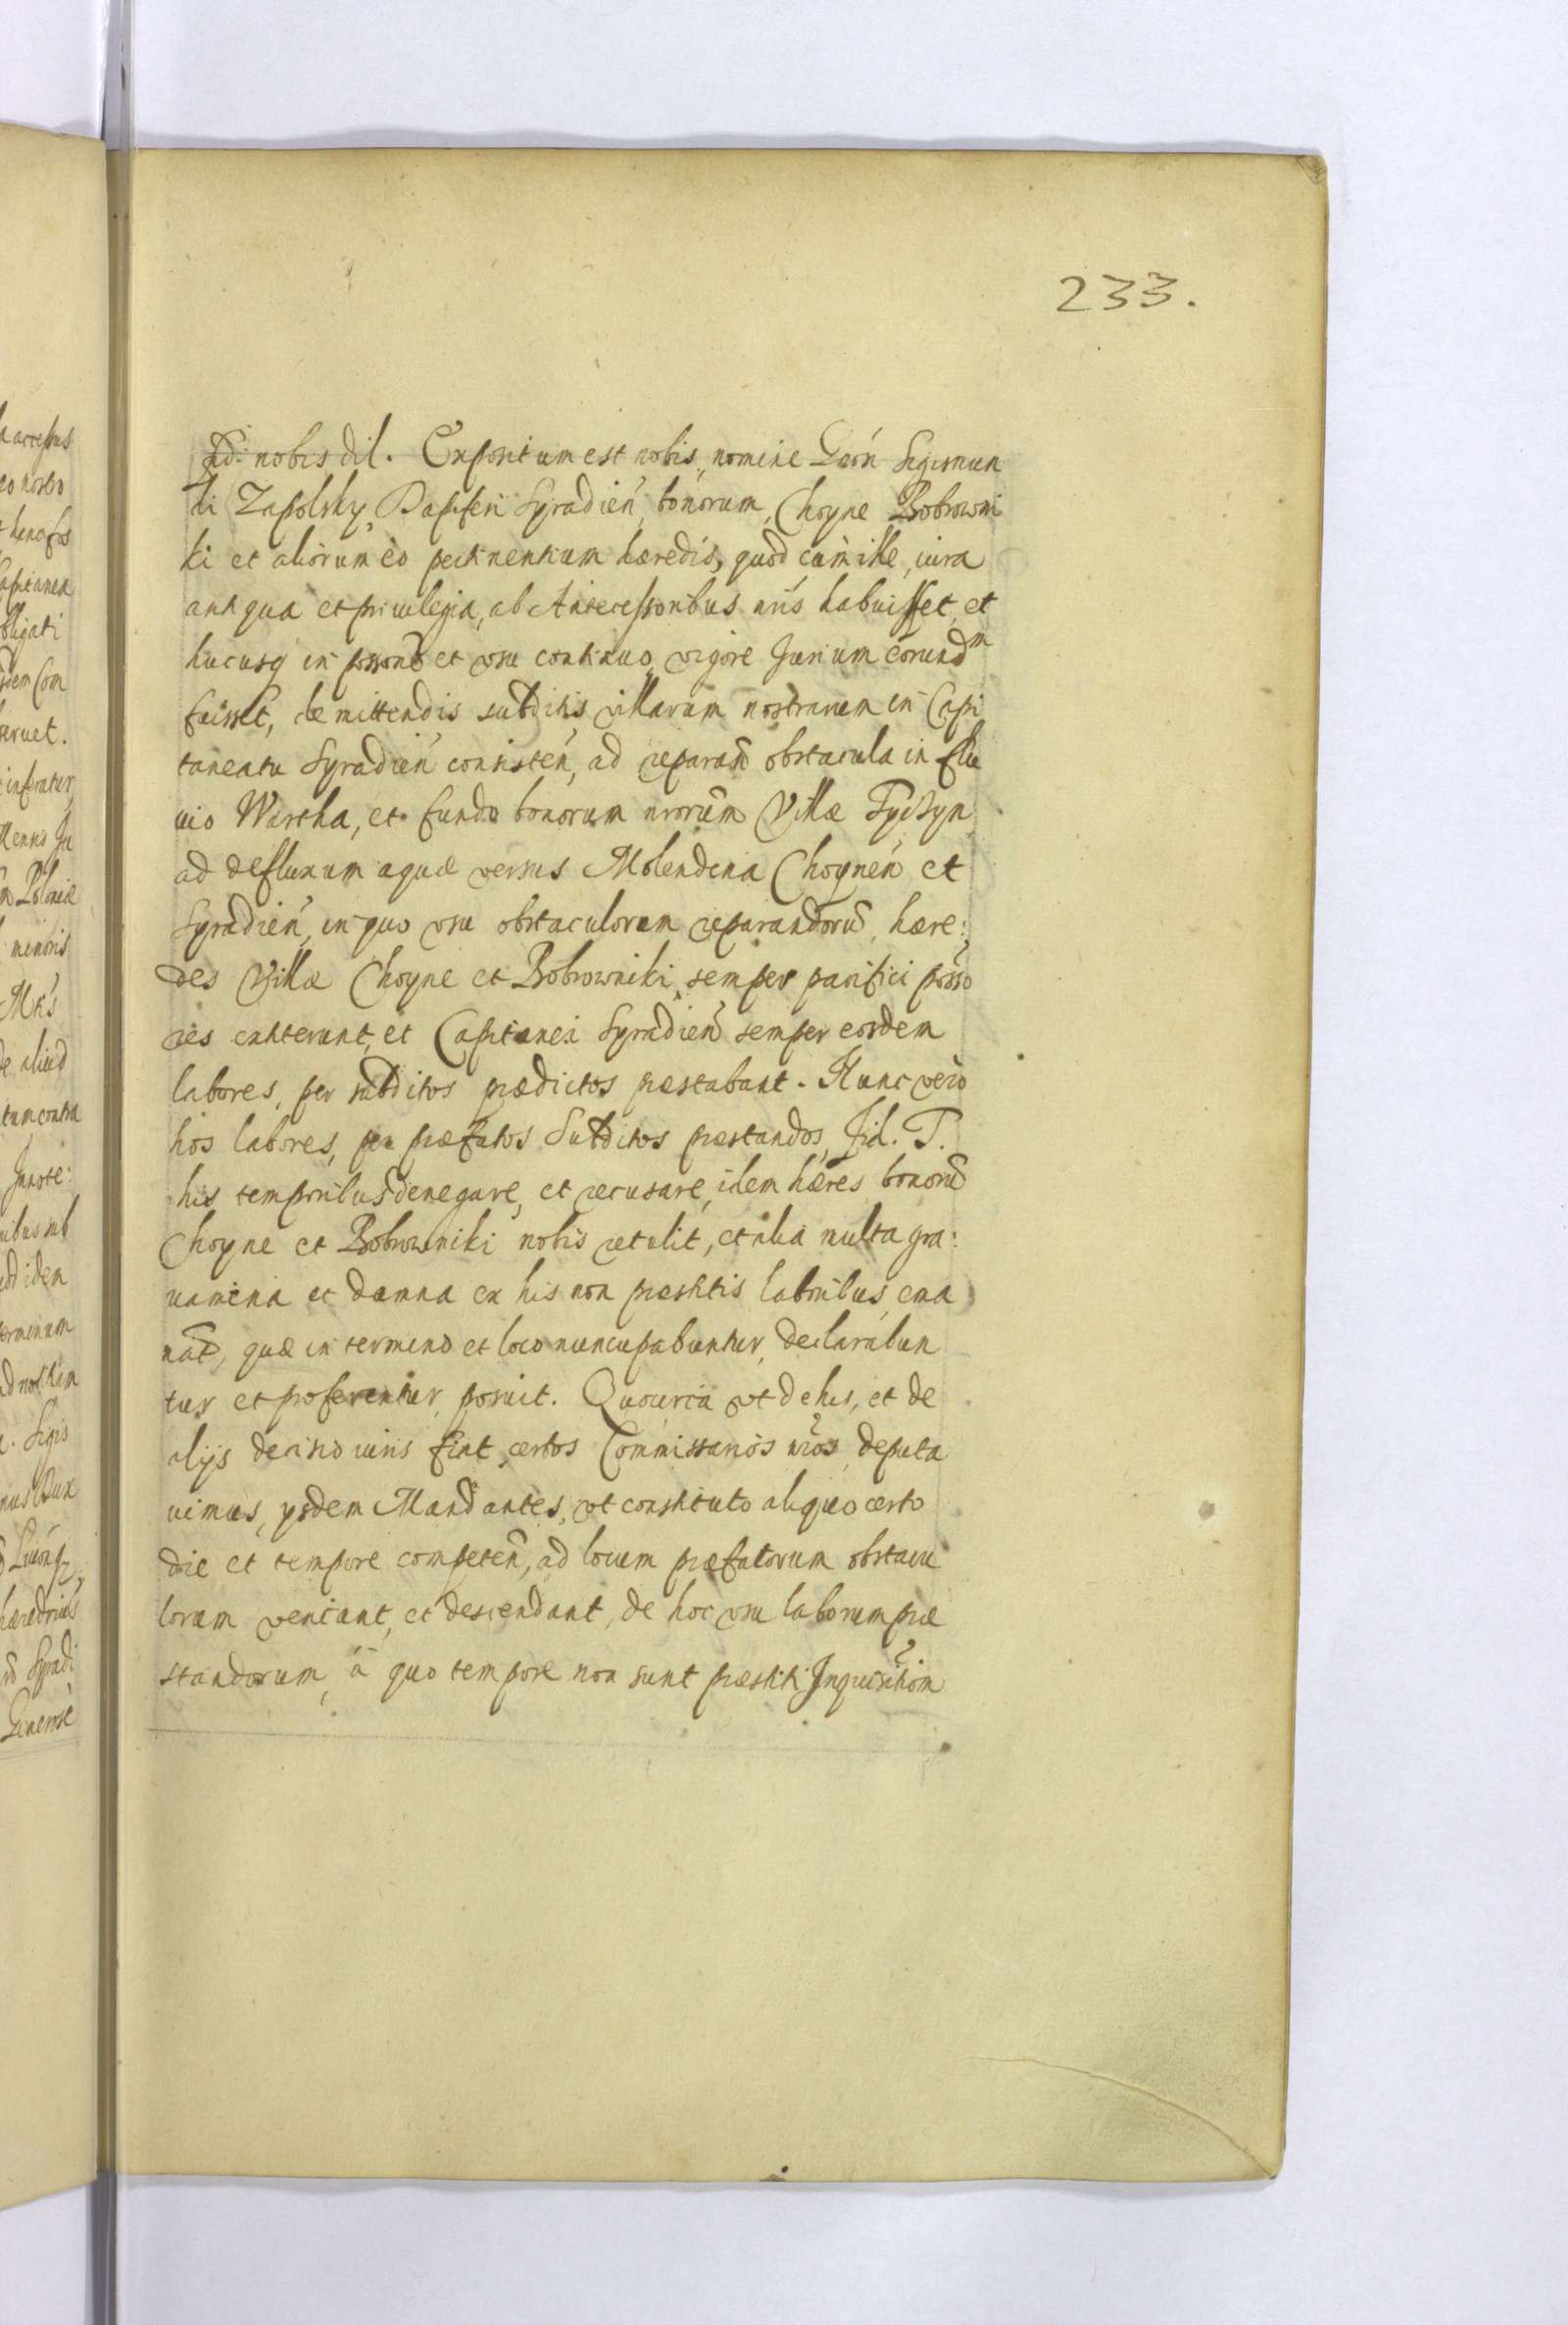 233.
fid: nobis dil. Expositum est nobis, nomine Gnōn Sigismun
di Zapolsky Dapiferi Syradień, bonorum, Choyne Bobrowni
ki et aliorum eò pertinentium hæredis, quod cùm ille, iura
antiqua et priuilegia, ab Antecessoribus nris habuisset, et
hucusq in possone et vsu continuo, vigore Jurium eorundm
fuisset, de mittendis subditis villarum nostrarum in Capi
taneatu Syradień consisteń, ad reparań obstacula in flu
uio Wartha, et fundo bonorum nrorum Villæ Tyczyn
ad defluxum aquæ versus Molendina Choyneń et
Syradień, in quo vsu obstaculorum reparandorū, hære:
des Villæ Choyne et Bobrowniki, semper pacifici posso
res extiterunt, et Capitanei Syradień semper eosdem
labores, per subditos prædictos præstabant. Nunc verò
hos labores, per præfatos Subditos præstandos, Fid. T.
his temporibus denegare, et recusare, idem hæres bonorū
Choyne et Bobrowniki nobis retulit, et alia multa gra:
uamina et damna ex his non præstitis laboribus, ema
nāt, quæ in termino et loco nuncupabuntur, declarabun
tur et proferentur, posuit. Quocirca vt de his, et de
alijs decisio iuris fiat, certos Commissarios nros, deputa
uimus, ysdem Mandantes, vt constituto aliquo certo
die et tempore competeń, ad locum præfatorum obstacu
lorum veniant, et descendant, de hoc vsu laborum præ
standorum, à quo tempore non sunt præstiti Inquisition